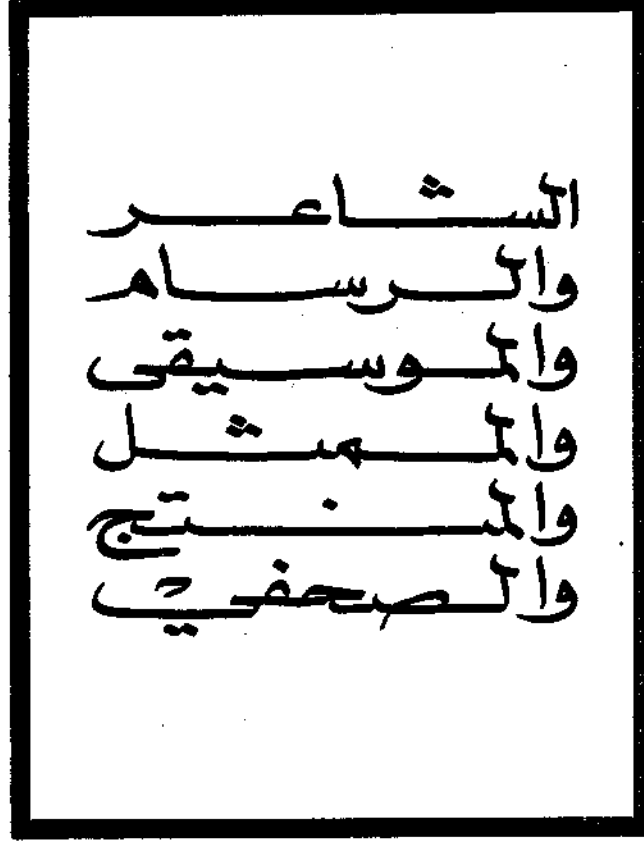 الشاعر
والرسام
والموسيقى
والممثل
والمنتج
والصحفي